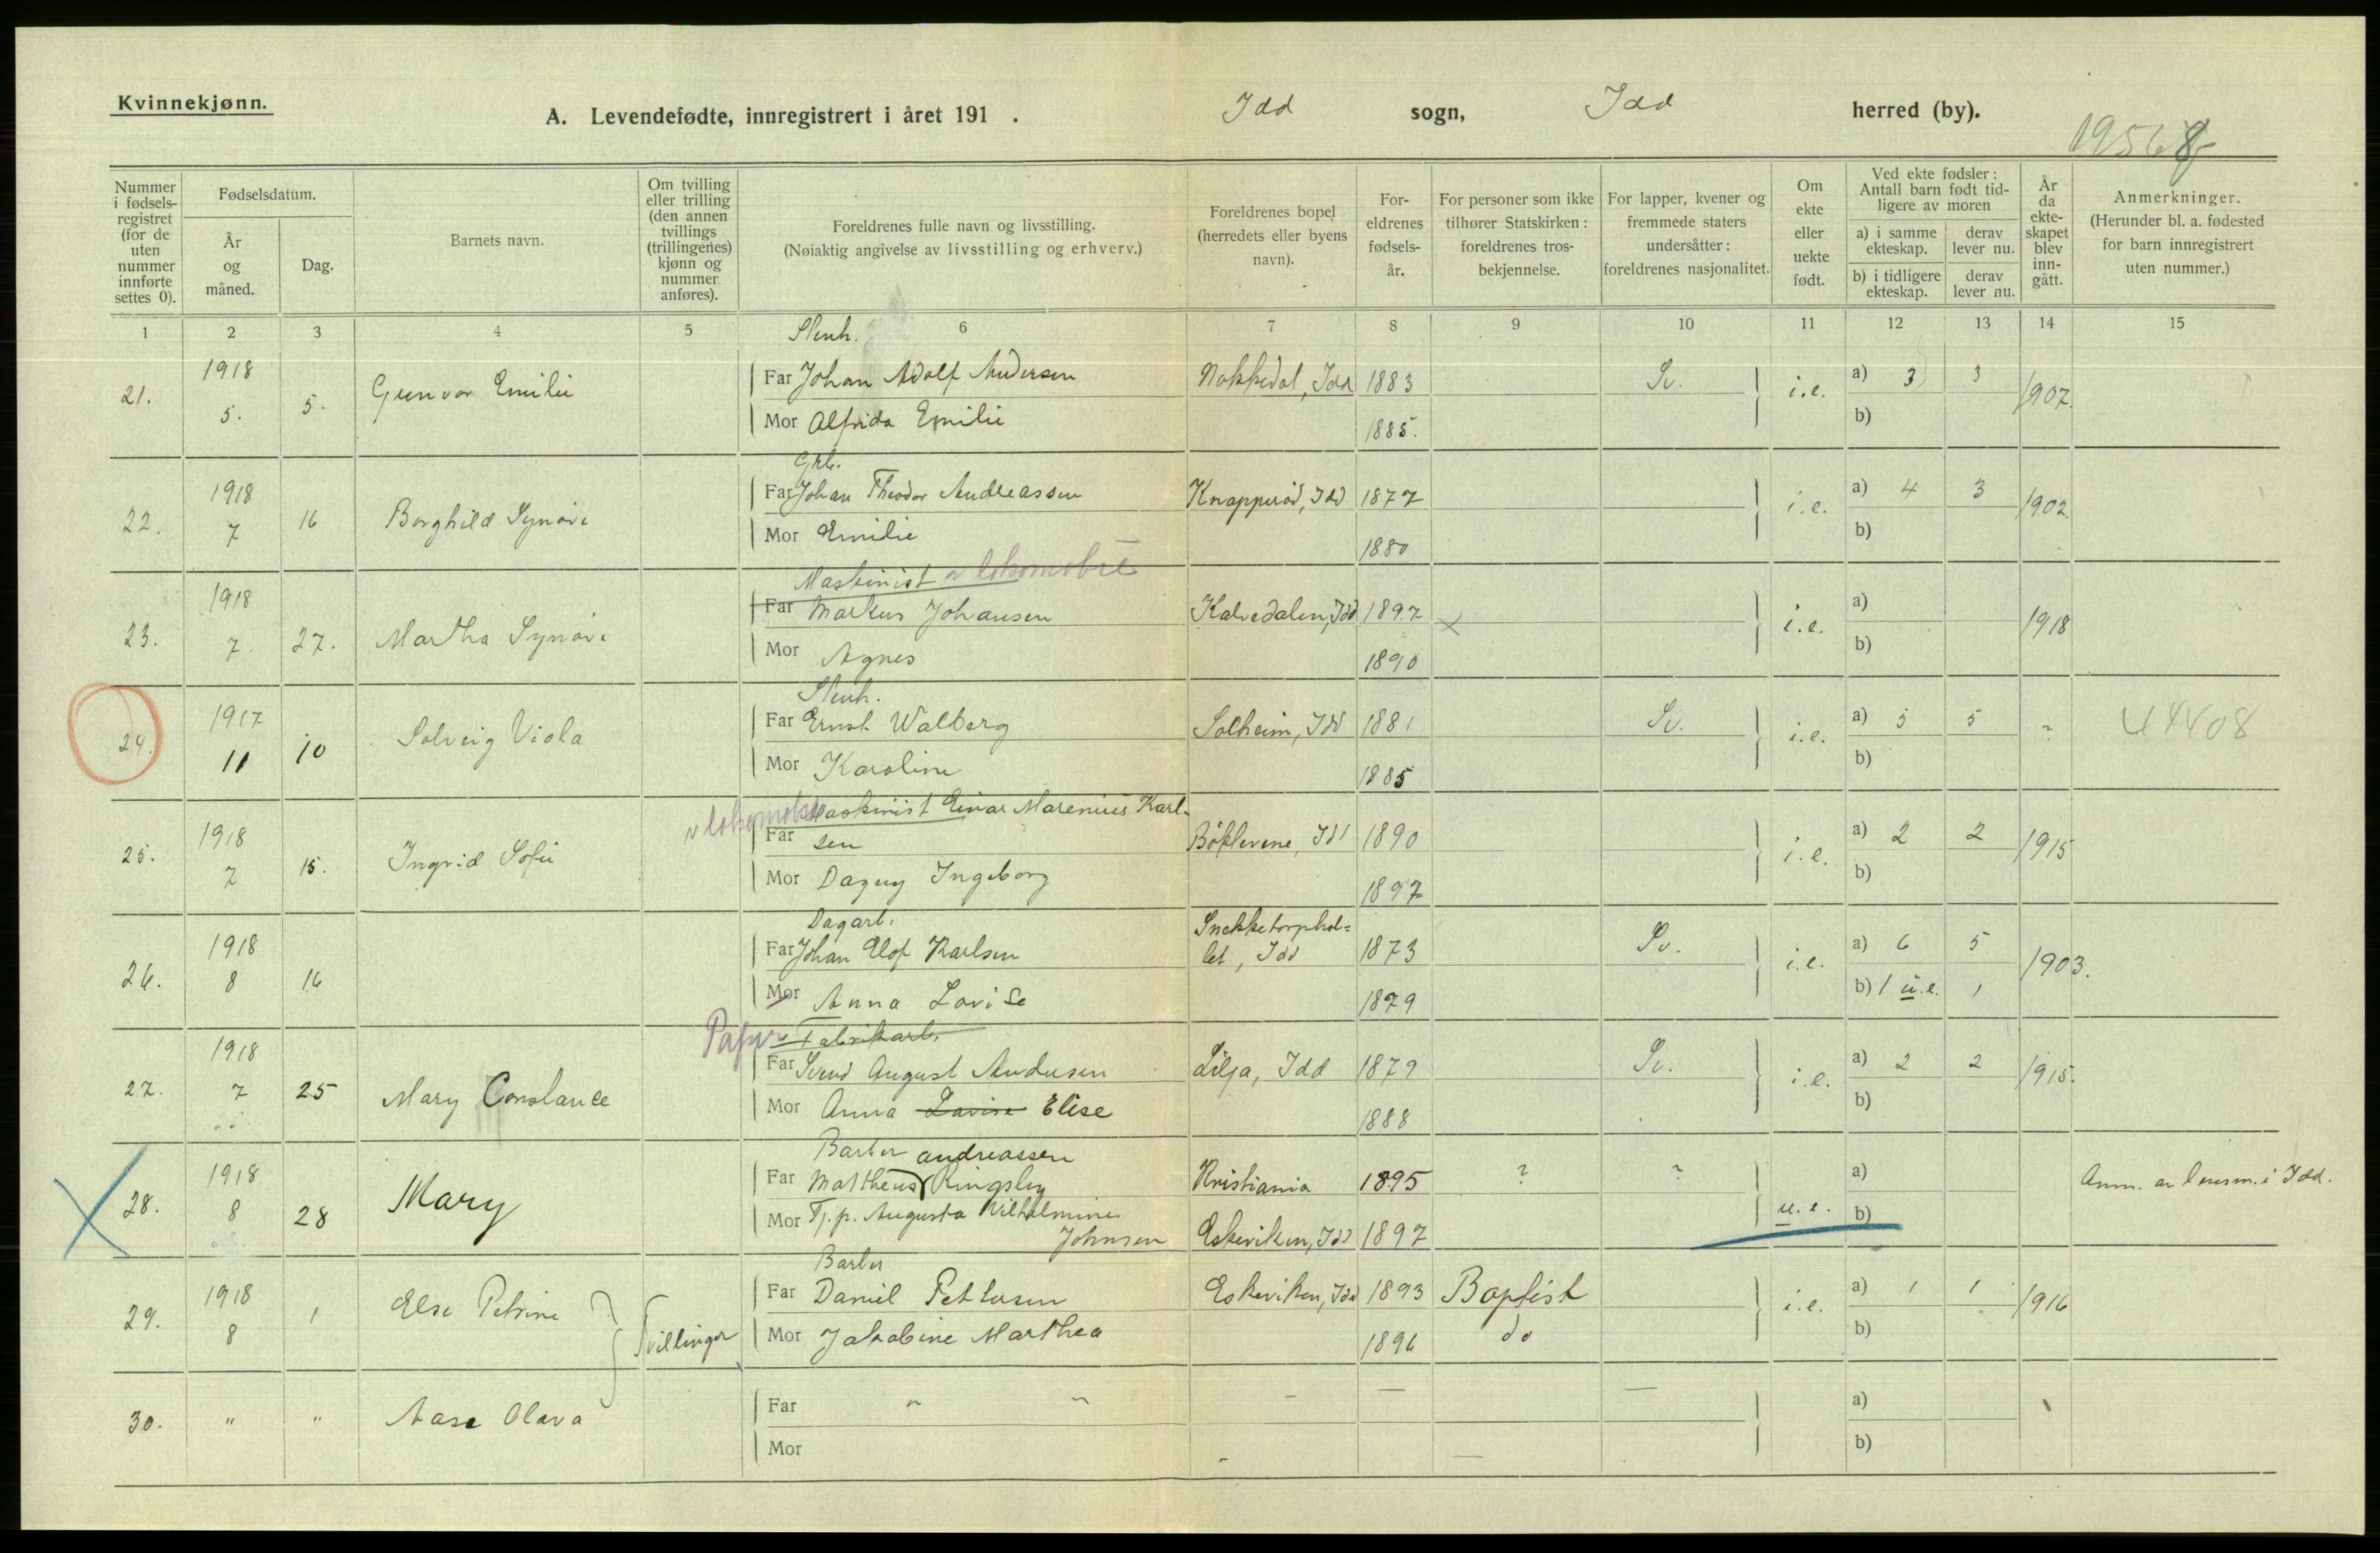 Kvinnekjønn.
A. Levendefødte, innregistrert i året 191 .
Idd sogn, Idd herred (by).
1956
Nummer i fødselsregistret (for de uten nummer innførte settes 0).
Fødselsdatum.
År og måned.
Dag.
Barnets navn.
Om tvilling eller trilling (den annen tvillings (trillingenes) kjønn og nummer anføres).
Foreldrenes fulle navn og livsstilling.
(Nøiaktig angivelse av livsstilling og erhverv.)
Foreldrenes bopel (herredets eller byens navn).
Foreldrenes fødselsår.
For personer som ikke tilhører Statskirken: foreldrenes trosbekjennelse.
For lapper, kvener og fremmede staters undersåtter: foreldrenes nasjonalitet.
Om ekte eller uekte født.
Ved ekte fødsler: Antall barn født tidligere av moren
a) i samme ekteskap.
derav lever nu.
b) i tidligere ekteskap.
derav lever nu.
År da ekteskapet blev inngått.
Anmerkninger.
(Herunder bl. a. fødested for barn innregistrert uten nummer.)
1 2 3 4 5 6 7 8 9 10 11 12 13 14 15
Stenh.
1918 Far Johan Adolf Andersen Nokkedal, Idd 1883 Sv. a) 3 3
21. 5. 5. Gunvor Emilie i.e. 1907.
Mor Alfrida Emilie 1885. b)
Grb.
1918 Far Johan Theodor Andreassen Knapperød, Idd 1877 a) 4 3
22. 7 16 Borghild Synøve i.e. 1902.
Mor Emilie 1880 b)
Maskinist v lokomobil
1918 Far Markus Johansen Kalvedalen, Idd 1897 a)
23. 7. 27. Martha Synøve i.e. 1918
Mor Agnes 1890 b)
Stenh.
1917 Far Ernst Walberg Solheim, Idd 1881 Sv. a) 5 5
24. 11 10 Solveig Viola i.e. ? 44408
Mor Karoline 1885 b)
v lokomobil Maskinist Einar Marenius Karl-
1918 Far sen 1890 a) 2 2
25. 7 15. Ingrid Sofie i.e. 1915
Mor Dagny Ingeborg 1897 b)
Dagarb. Snekketorphol=
1918 Far Johan Elof Karlsen let, Idd 1873 Sv. a) 6 5
26. 8 16 i.e. 1903.
Mor Anna Lovise 1879 b) 1 u.e. 1
Papir Fabrikarb.
1918 Far Svend August Andersen Lilja, Idd 1879 Sv. a) 2 2
27. 7 25 Mary Constance i.e. 1915.
Mor Anna Lovise Elise 1888 b)
Barber Andreassen
1918 Far Mattheus Kingsley Kristiania 1895 ? ? a) Anm. av lensm. i Idd.
28. 8 28 Mary u.e.
Mor Tj.p. Augusta Vilhelmine
Johnsen Eskeviken, Idd 1897 b)
Barber
1918 Far Daniel Pettersen Eskeviken, Idd 1893 Baptist a) 1 1
29. 8 1 Else Petrine Tvillinger i.e. 1916
Mor Jakobine Marthea 1896 do b)
Far " " — — — a)
30. " " Aase Olava
Mor b)